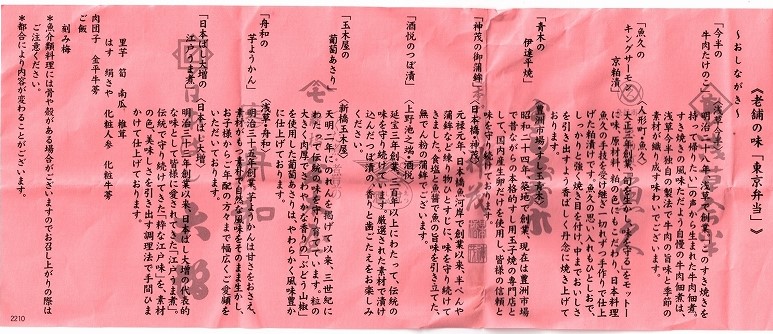 《老舗の味「東京弁当」》
～おしながき～
「今半の
牛肉たけのこ」
〈浅草今半〉
明治二十八年、浅草で創業。「このすき焼きを
持って帰りたい」の声から生まれた牛肉佃煮。
すき焼きの風味ただよう自慢の牛肉佃煮は、
浅草今半独自の製法で牛肉の旨味と季節の
素材が織り成す味わいでございます。
「魚久の
キングサーモン
京粕漬」
〈人形町・魚久〉
大正三年創業。「旬を色どり、味を守る」をモットー
に味、原材料、旬の色にもこだわり、日本料理
の伝統と技を受け継ぎ一切れずつ手作りで仕上
げた粕漬けです。魚久の思い入れもひとしおで、
しっかりと強く焼き目を付け、中までおいしさ
を引き出すよう香ばしく丹念に焼き上げて
「青木の
伊達平焼」
〈豊洲市場・すし玉青木〉
昭和二十四年築地で創業。現在は豊洲市場
で昔ながらの本格的すし用玉子焼の専門店と
して、国内産生卵だけを使用し、皆様の信頼と
味を守り続けております。
「神茂の御蒲鉾」
〈日本橋・神茂〉
元禄元年、日本橋魚河岸で創業以来、半ぺんや
蒲鉾など練りものひとすじに、味を守り続けて
きました。食塩と魚醤で魚の旨味を引き立てた、
無でん粉の蒲鉾でございます。
「酒悦のつぼ漬」
〈上野池之端・酒悦〉
延宝三年創業。三百年以上にわたって、伝統の
味を守り続けています。厳選された素材で漬け
込んだつぼ漬の香りと歯ごたえをお楽しみ
ください。
「玉木屋の
葡萄あさり」
〈新橋玉木屋〉
天明二年にのれんを掲げて以来、三世紀に
わたって伝統の味を守り育てています。粒の
大きく肉厚でさわやかな香りの「ぶどう山椒」
を使用した葡萄あさりは、やわらかく風味豊か
に仕上げております。
「舟和の
芋ようかん」
〈浅草・舟和〉
明治三十五年創業。芋ようかんは甘さをおさえ、
素材がもつ芋の自然な風味をそのまま生かし、
お子様からご年配の方々まで幅広くご愛顧を
いただいております。
「日本ばし大増の
江戸うま煮」
〈日本ばし大増〉
明治三十三年創業以来、日本ばし大増の代表的
な味として皆様に愛されてきた「江戸うま煮」。
伝統で守り続けてきた「粋な江戸味」を、素材
の色、美味しさを引き出す調理法で手間ひま
かけて仕上げております。
里芋　筍　南瓜　椎茸
はす　絹さや　化粧人参　化粧牛蒡
肉団子　金平牛蒡
ご飯
刻み梅
＊魚介類料理には骨や殻がある場合がございますのでお召し上がりの際は
ご注意ください。
＊都合により内容が変わることがございます。
2210